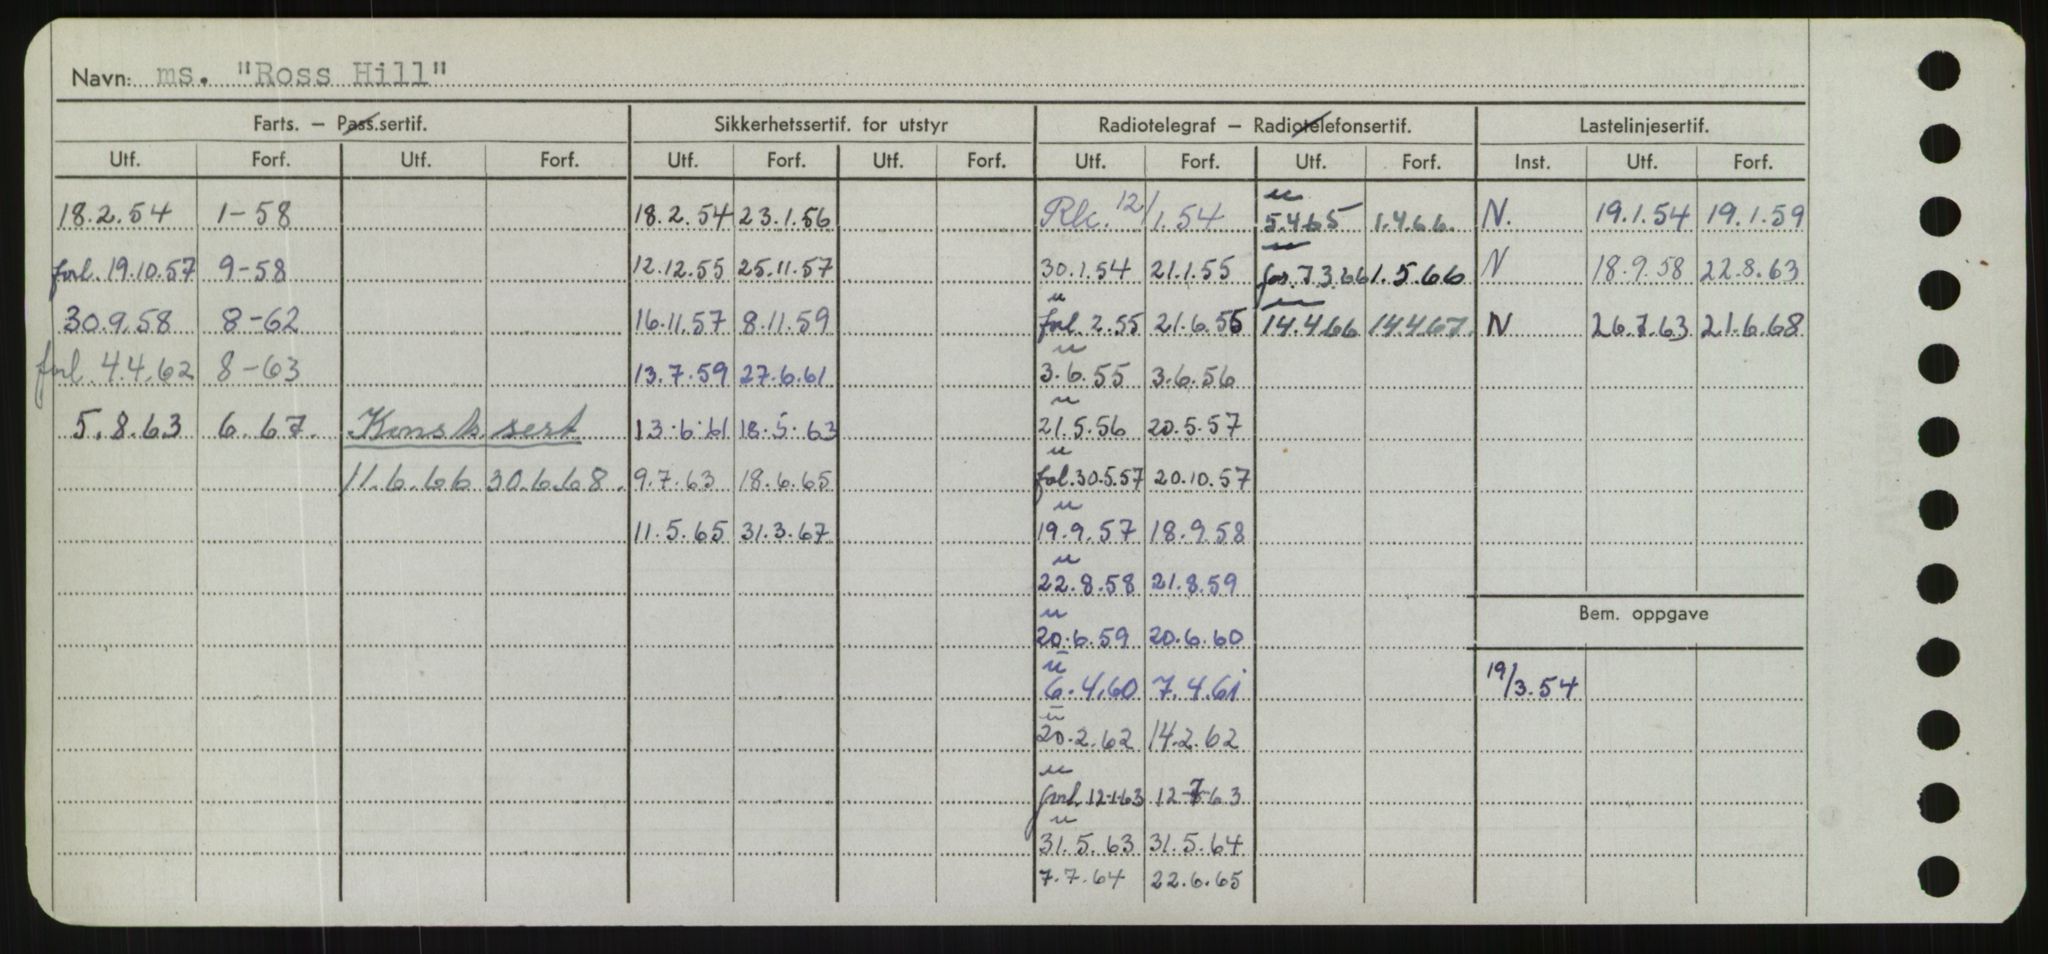 Navn: ms. "Ross Hill"
Farts. – Pass.sertif. Sikkerhetssertif. for utstyr Radiotelegraf – Radiotelefonsertif. Lastelinjesertif.
Utf. Forf. Utf. Forf. Utf. Forf. Utf. Forf. Utf. Forf. Utf. Forf. Inst. Utf. Forf.
18.2.54 1-58 18.2.54 23.1.56 12/1.54 u 5.4.65 1.4.66. N. 19.1.54 19.1.59
forl. 19.10.57 9-58 12.12.55 25.11.57 30.1.54 21.1.55 u for. 7.3.66 1.5.66 N 18.9.58 22.8.63
30.9.58 8-62 16.11.57 8.11.59 u forl. 2.55 21.6.55 u 14.4.66 14.4.67. N 26.7.63 21.6.68
forl. 4.4.62 8-63 13.7.59 27.6.61 u 3.6.55 3.6.56
5.8.63 6.67. Konstr. sert 13.6.61 18.5.63 u 21.5.56 20.5.57
11.6.66 30.6.68. 9.7.63 18.6.65 u fol. 30.5.57 20.10.57
11.5.65 31.3.67 u 19.9.57 18.9.58
u 22.8.58 21.8.59
Bem. oppgave
u 20.6.59 20.6.60
u 6.4.60 7.4.61 19/3.54
u 20.2.62 14.2.62
u forl. 12-1-63 12-7-63
u 31.5.63 31.5.64
7.7.64 22.6.65